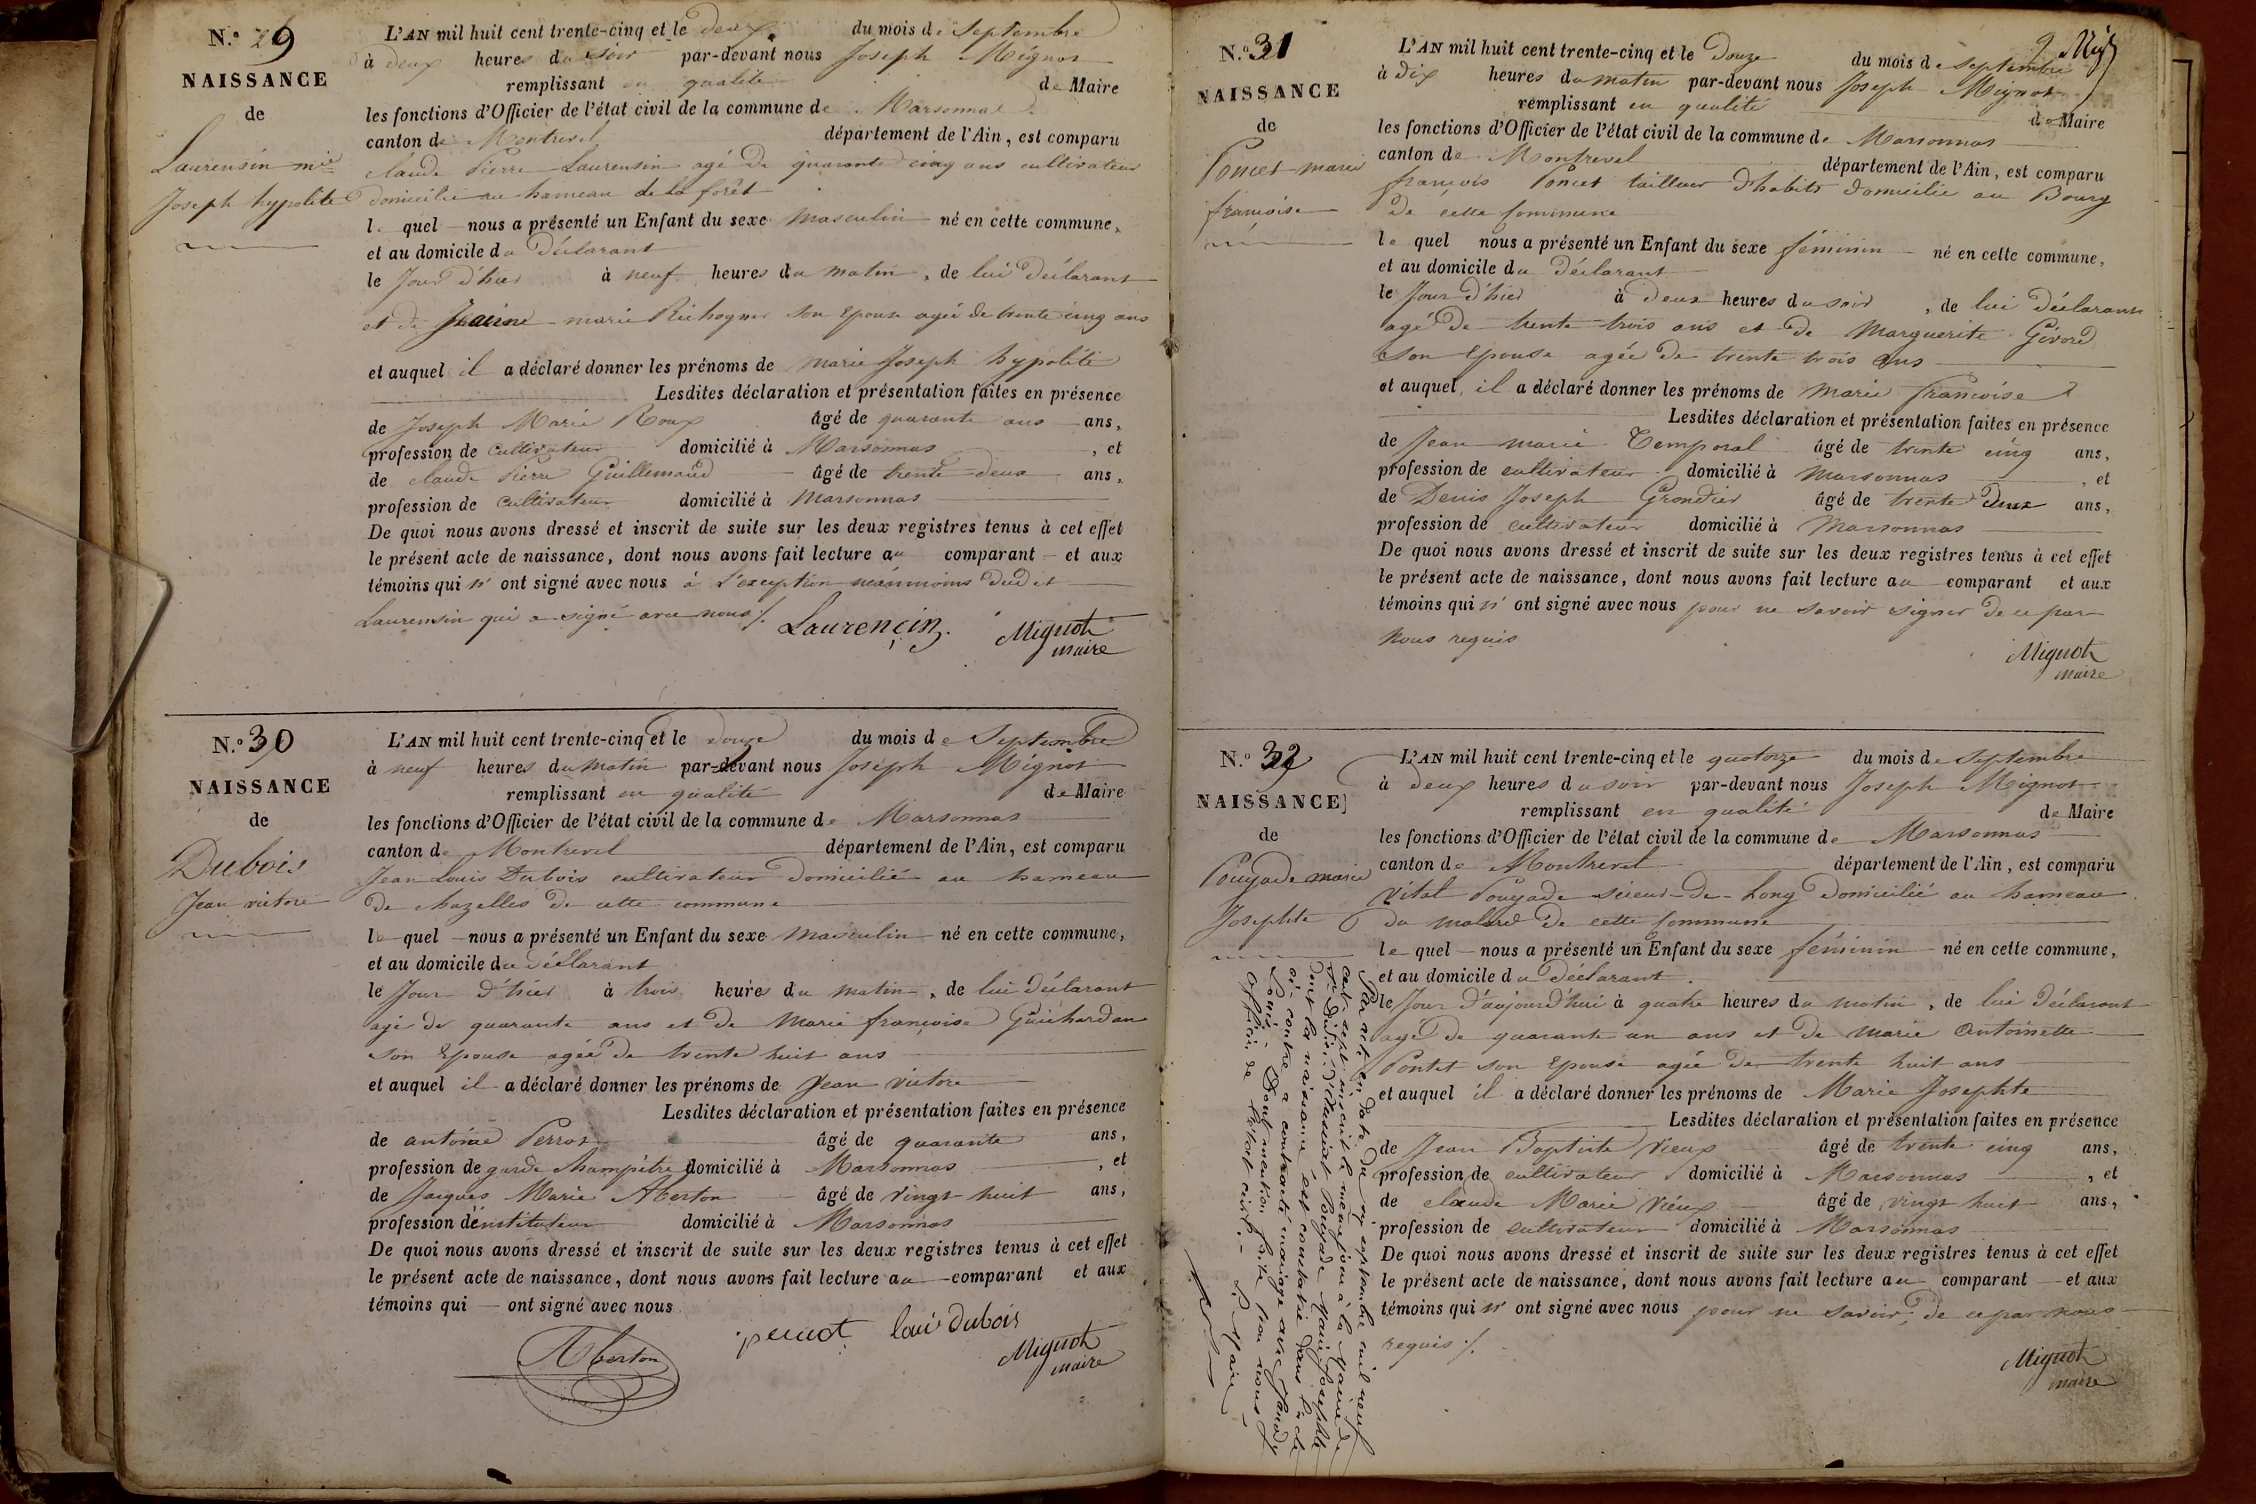 N.° 29
NAISSANCE
de
Laurensin m.ie
Joseph hypolite
L'AN mil huit cent trente-cinq et le deux du mois de Septembre
à deux heures du soir par-devant nous Joseph Mignot
remplissant en qualité de Maire
les fonctions d'Officier de l'état civil de la commune de Marsonnas
canton de Montrevel département de l'Ain, est comparu
claude Pierre Laurensin agé de quarante cinq ans cultivateur
domicilié au hameau de la forêt
l quel nous a présenté un Enfant du sexe masculin né en cette commune,
et au domicile du Déclarant
le Jour d'hier à neuf heures du matin, de lui déclarant
et de Jeanne marie Richogner son Epouse agée de trente cinq ans
et auquel il a déclaré donner les prénoms de marie Joseph hypolite
Lesdites déclaration et présentation faites en présence
de Joseph Marie Roux âgé de quarante ans ans,
profession de cultivateur domicilié à Marsonnas, et
de claude Pierre Guillemaud âgé de trente deux ans,
profession de cultivateur domicilié à Marsonnas
De quoi nous avons dressé et inscrit de suite sur les deux registres tenus à cet effet
le présent acte de naissance, dont nous avons fait lecture au comparant et aux
témoins qui n' ont signé avec nous à l'exception néanmoins dudit
Laurensin qui a signé avec nous /.
Laurencin. Mignot
maire
N.° 30
NAISSANCE
de
Dubois
Jean victore
L'AN mil huit cent trente-cinq et le douze du mois de Septembre
à neuf heures du matin par-devant nous Joseph Mignot
remplissant en qualité de Maire
les fonctions d'Officier de l'état civil de la commune de Marsonnas
canton de Montrevel département de l'Ain, est comparu
Jean Louis Dubois cultivateur domicilié au hameau
de chazelles de cette commune
le quel nous a présenté un Enfant du sexe masculin né en cette commune,
et au domicile du déclarant
le Jour d'hier à trois heures du matin, de lui déclarant
agé de quarante ans et de Marie françoise Guichardan
son Epouse agée de trente huit ans
et auquel il a déclaré donner les prénoms de Jean victore
Lesdites déclaration et présentation faites en présence
de antoine Perrot âgé de quarante ans,
profession de garde champêtre domicilié à Marsonnas, et
de Jacques Marie Aberton âgé de vingt huit ans,
profession d'instituteur domicilié à Marsonnas
De quoi nous avons dressé et inscrit de suite sur les deux registres tenus à cet effet
le présent acte de naissance, dont nous avons fait lecture au comparant et aux
témoins qui ont signé avec nous
Aberton perrot loui dubois Mignot
maire
N.° 31
NAISSANCE
de
Poncet marie
francoise
L'AN mil huit cent trente-cinq et le Douze du mois de Septembre
à Dix heures du matin par-devant nous Joseph Mignot
remplissant en qualité de Maire
les fonctions d'Officier de l'état civil de la commune de Marsonnas
canton de Montrevel département de l'Ain, est comparu
françois Poncet tailleur d'habits domicilié au Bourg
de cette Commune
le quel nous a présenté un Enfant du sexe féminin né en cette commune,
et au domicile du Déclarant
le Jour d'hier à deux heures du soir, de lui déclarant
agé de trente trois ans et de Marguerite Givord
son Epouse agée de trente trois ans
et auquel, il a déclaré donner les prénoms de Marie francoise
Lesdites déclaration et présentation faites en présence
de Jean marie Temporal âgé de trente cinq ans,
profession de cultivateur domicilié à Marsonnas, et
de Denis Joseph Grondier âgé de trente deux ans,
profession de cultivateur domicilié à Marsonnas
De quoi nous avons dressé et inscrit de suite sur les deux registres tenus à cet effet
le présent acte de naissance, dont nous avons fait lecture au comparant et aux
témoins qui n' ont signé avec nous pour ne savoir signer de ce par
nous requis
Mignot
maire
N.° 32
NAISSANCE
de
Pougade marie
Josephte
L'AN mil huit cent trente-cinq et le quatorze du mois de Septembre
à deux heures du soir par-devant nous Joseph Mignot
remplissant en qualité de Maire
les fonctions d'Officier de l'état civil de la commune de Marsonnas
canton de Montrevel département de l'Ain, est comparu
Vital Pougade sieur-de-long domicilié au hameau
du molard de cette Commune
le quel nous a présenté un Enfant du sexe féminin né en cette commune,
et au domicile du Déclarant
le Jour d'aujourd'hui à quatre heures du matin, de lui déclarant
agé de quarante un ans et de Marie Antoinette
Pontet son Epouse agée de trente huit ans
et auquel il a déclaré donner les prénoms de Marie Josephte
Lesdites déclaration et présentation faites en présence
de Jean Baptiste Vieux âgé de trente cinq ans,
profession de cultivateur domicilié à Marsonnas, et
de claude Marie Vieux âgé de vingt huit ans,
profession de cultivateur domicilié à Marsonnas
De quoi nous avons dressé et inscrit de suite sur les deux registres tenus à cet effet
le présent acte de naissance, dont nous avons fait lecture au comparant et aux
témoins qui n' ont signé avec nous pour ne savoir, de ce par nous
requis /.
Mignot
maire
Par acte en date du septembre mil neuf
cent sept inscrit le même jour à la Mairie de
Pougade Marie Josephte
dont la naissance est constatée dans l'acte
ci-contre a contracté mariage avec
Dont mention faite par nous
officier de l'état civil. Le Maire